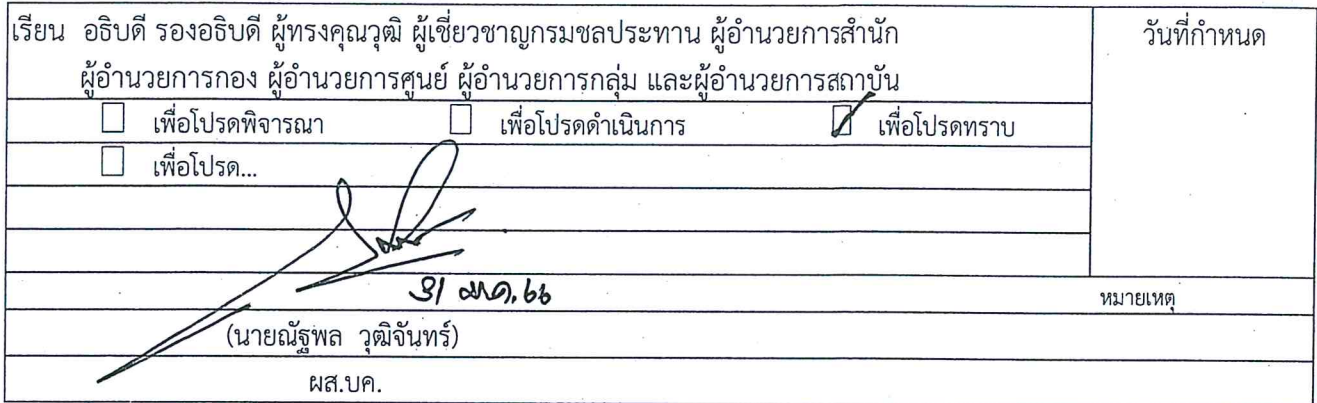 เรียน อธิบดี รองอธิบดี ผู้ทรงคุณวุฒิ ผู้เชี่ยวชาญกรมชลประทาน ผู้อำนวยการสำนัก
ผู้อำนวยการกอง ผู้อำนวยการศูนย์ ผู้อำนวยการกลุ่ม และผู้อำนวยการสถาบัน
วันที่กำหนด
เพื่อโปรดพิจารณา เพื่อโปรดดำเนินการ เพื่อโปรดทราบ
เพื่อโปรด...
31 ม.ค. 66
หมายเหตุ
(นายณัฐพล วุฒิจันทร์)
ผส.บค.